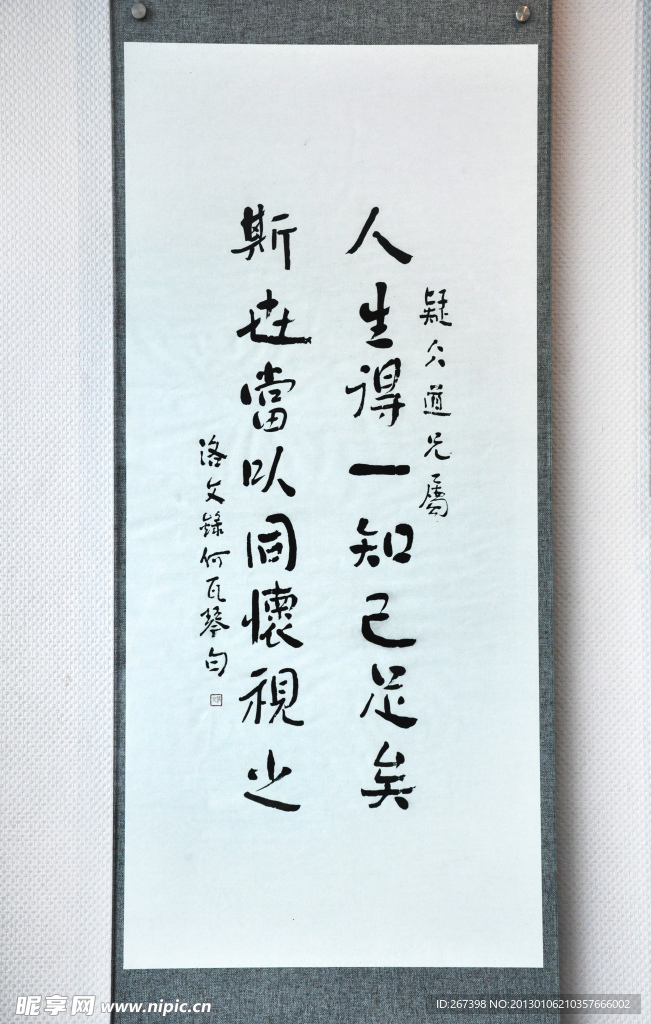 疑仌道兄屬
人生得一知己足矣
斯世當以同懷視之
洛文錄何瓦琴句
昵享网 www.nipic.cn
ID:267398 NO:20130106210357666002